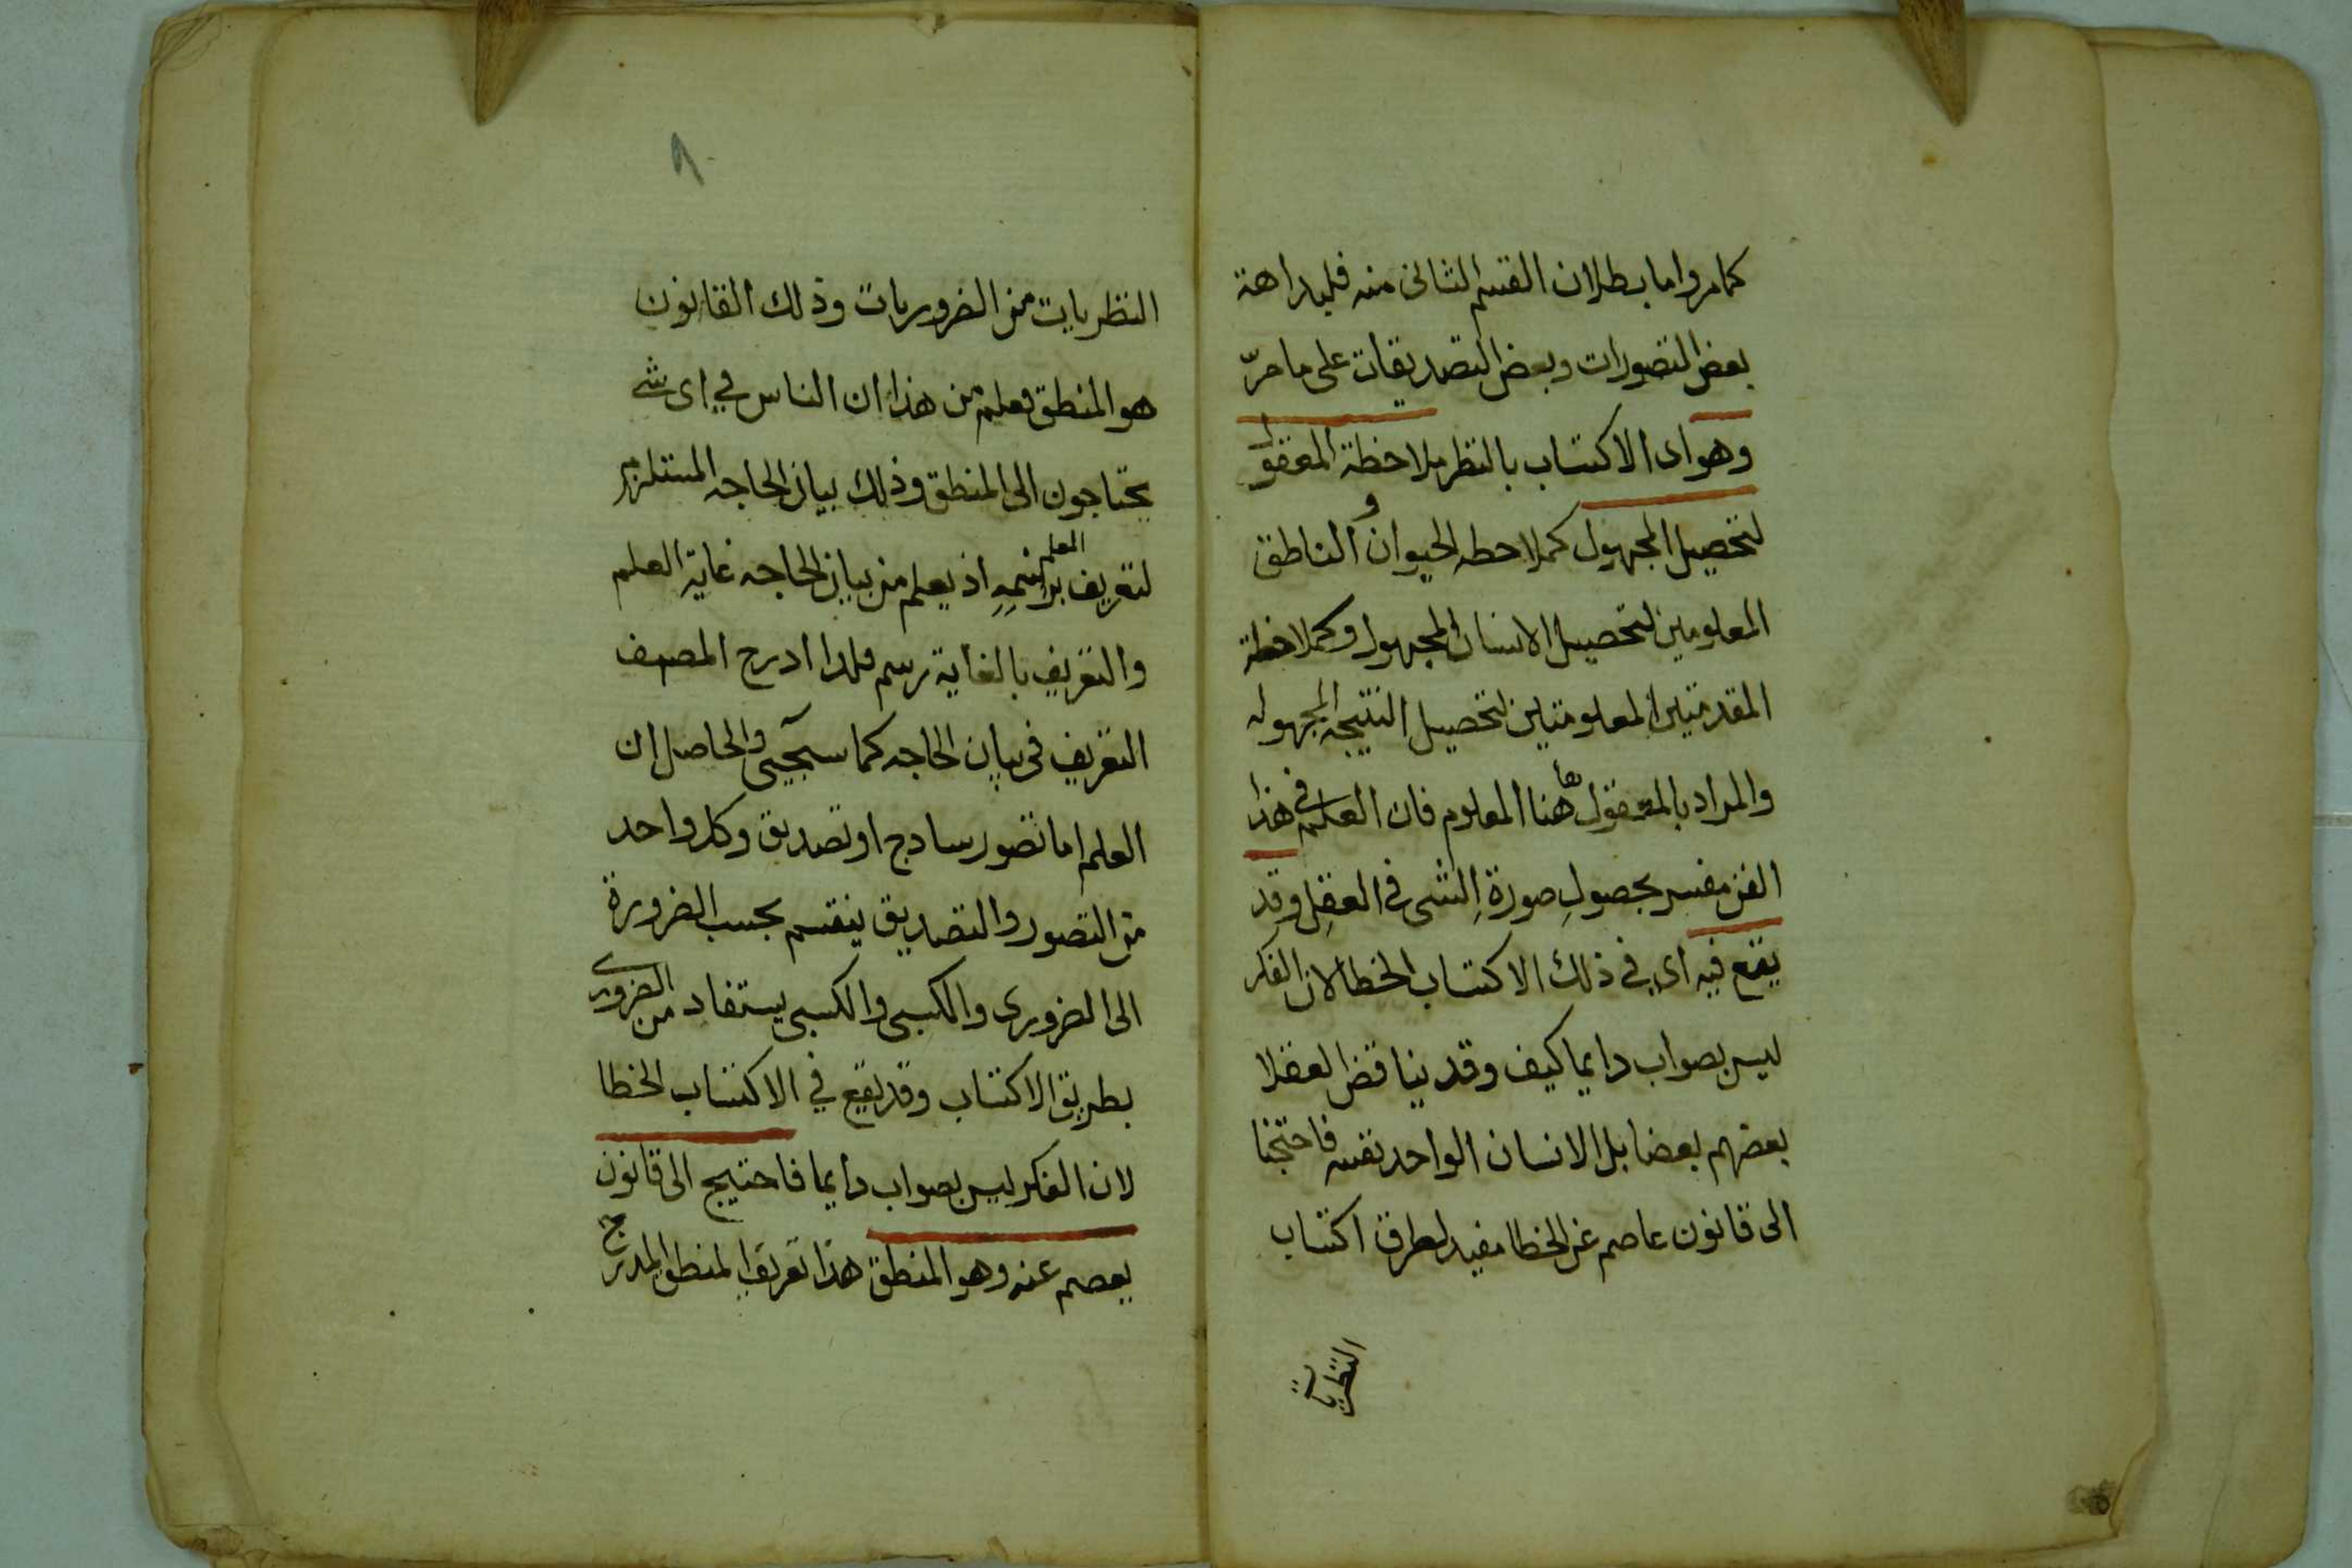 كما مر واما بطلان القسم الثانى منه فلبداهة
بعض التصورات وبعض التصديقات على ما مرّ
وهو اى الاكتساب بالنظر ملاحظة المعقول
لتحصيل المجهول كملاحطه الحيوان و الناطق
المعلومين لتحصيل الانسان المجهول وكملاحظة
المقدمتين المعلومتين لتحصيل النتيجه المجهوله
والمراد بالمعقول هاهنا المعلوم فان العلم فى هذا
الفن مفسر بحصولِ صورة الشى فى العقل وقد
يقع فيه اى في ذلك الاكتساب الخطا لان الفكر
ليس بصواب دايما كيف وقد يناقض العقلا
بعضهم بعضا بل الانسان الواحد نفسه فاحتجنا
الى قانون عاصم عن الخطا مفيد لطرق اكتساب
النظريات
٨
النظريات من الضروريات وذلك القانون
هو المنطق فعلم من هذا ان الناس في اى شے
يحتاجون الى المنطق وذلك بيان الحاجه المستلزم
لتعريف العلم برسمِهِ اذ يعلم من بيان الحاجه غاية العلم
والتعريف بالغاية رسم فلذا ادرج المصنف
التعريف فى بيان الحاجه كما سيجيى والحاصل ان
العلم اما تصور ساذج او تصديق وكل واحد
من التصور والتصديق ينقسم بحسب الضرورة
الى الضرورى والكسبى والكسبى يستفاد من الضرورى
بطريق الاكتساب وقد يقع في الاكتساب الخطا
لان الفكر ليس بصواب دايما فاحتيج الى قانون
يعصم عنه وهو المنطق هذا تعريف المنطق المدرج